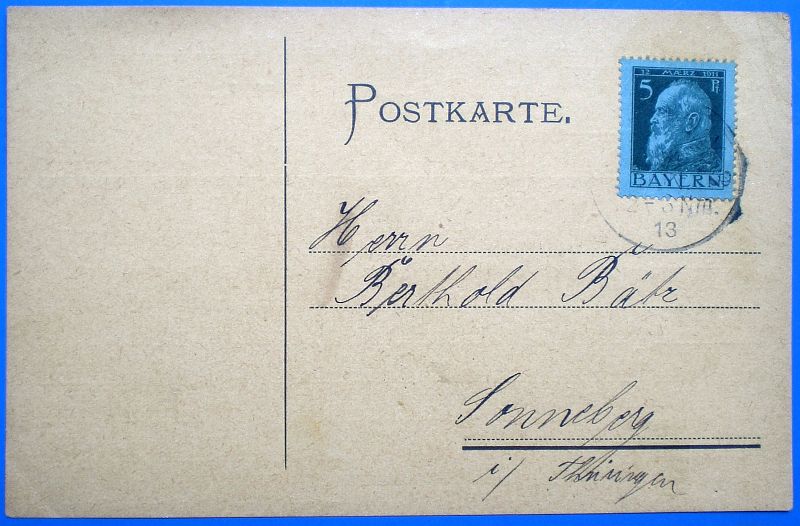 POSTKARTE.
12 MÆRZ 1911
5 Pf
BAYERN
2-3 Nm.
13
Herrn
Berthold Bätz
Sonneberg
i/ Thüringen